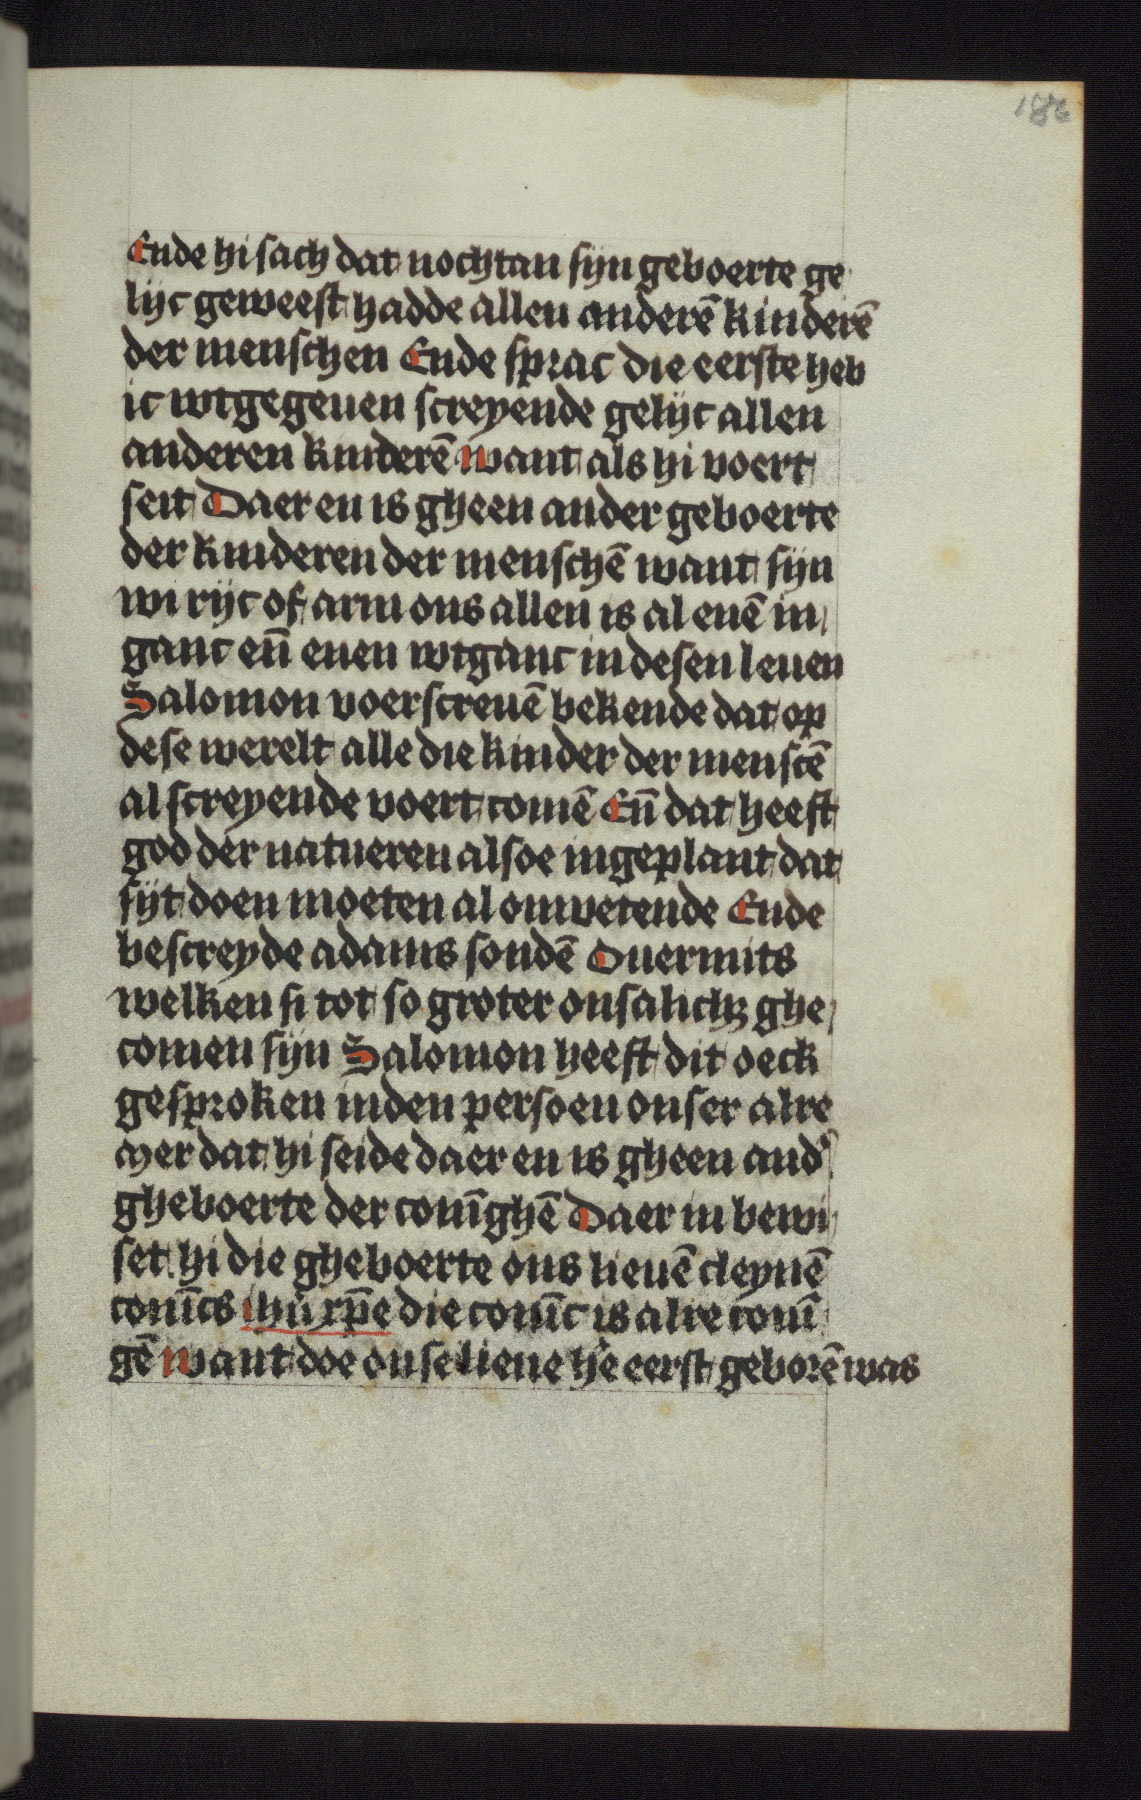 186
Ende hi sach dat nochtan sijn geboerte ge
lijc geweest hadde allen anderē kinderē
der menschen Ende sprac die eerste heb
ic wtgegeuen screyende gelijc allen
anderen kinderē want als hi voert
seit Daer en is gheen ander geboerte
der kinderen der menschē want sijn
wi rijc of arm ons allen is al euē in
ganc eñ euen wtganc in desen leuen
Salomon voerscreuē bekende dat op
dese werelt alle die kinder der menscē
al screyende voert comē Eñ dat heeft
god der natueren alsoe ingeplant dat
sijt doen moeten al onwetende Ende
bescreyde adams sondē Ouermits
welken si tot so groter onsalichꝫ ghe
comen sijn Salomon heeft dit oeck
gesproken inden persoen onser alre
Mer dat hi seide daer en is gheen and'
gheboerte der conīghē Daer in bewi
set hi die gheboerte ons lieuē cleynē
conīcs ihū xpē die conīc is alre conī
gē want doe onse lieue h'e eerst geborē was